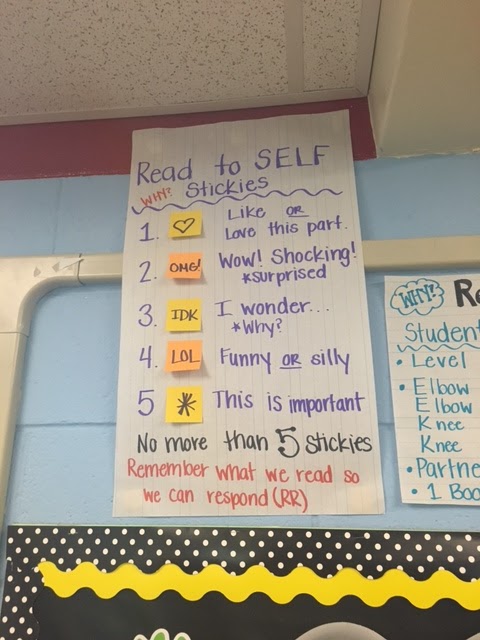 Read to SELF
WHY? Stickies
1. ♡ Like OR
Love this part.
2. OMG! Wow! Shocking!
*surprised
3. IDK I wonder...
*Why?
4. LOL Funny OR silly
5 * This is important
No more than 5 stickies
Remember what we read so
we can respond (RR)
WHY?
Student
• Level
• Elbow
Elbow
Knee
Knee
• Partne
• 1 Boo